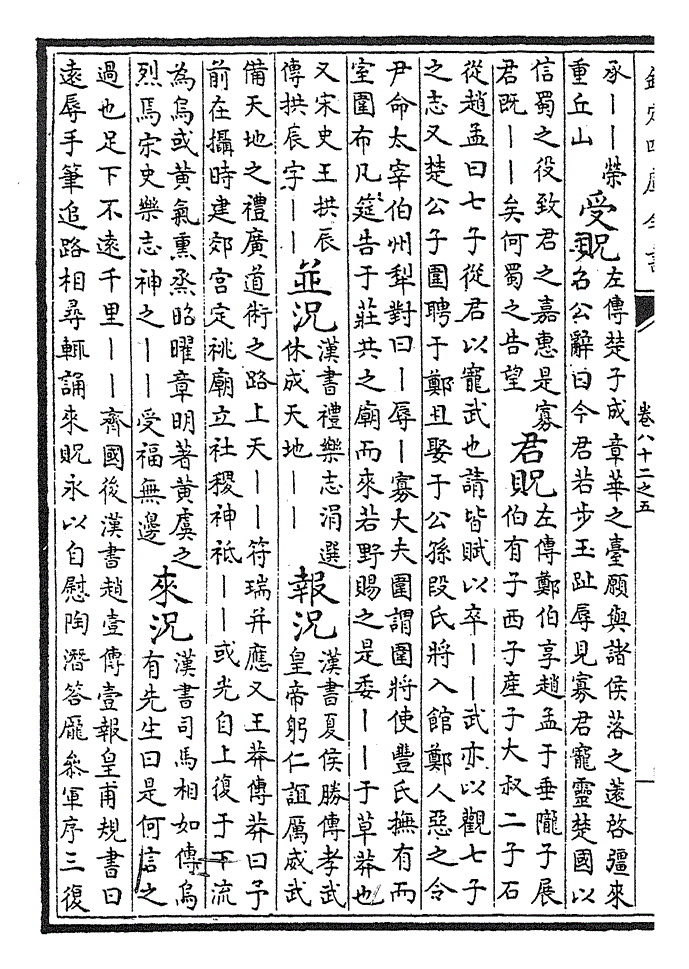 欽定四庫全書 卷八十二之五
承——榮
重丘山
受貺
左傳楚子成章華之臺願與諸侯落之薳啓疆來
名公辭曰今君若步玉趾辱見寡君寵靈楚國以
信蜀之役致君之嘉惠是寡
君既——矣何蜀之告望
君貺
左傳鄭伯享趙孟于垂隴子展
伯有子西子産子大叔二子石
從趙孟曰七子從君以寵武也請皆賦以卒——武亦以觀七子
之志又楚公子圍聘于鄭且娶于公孫段氏將入館鄭人惡之令
尹命太宰伯州犁對曰—辱—寡大夫圍謂圍將使豐氏撫有而
室圍布几筵告于莊共之廟而來若野賜之是委——于草莽也
又宋史王拱辰
傳拱辰字——
並況
漢書禮樂志涓選
休成天地——
報況
漢書夏侯勝傳孝武
皇帝躬仁誼厲威武
備天地之禮廣道術之路上天——符瑞并應又王莽傳莽曰予
前在攝時建郊宫定祧廟立社稷神祇——或光自上復于下流
為烏或黄氣熏烝昭曜章明著黄虞之
烈焉宋史樂志神之——受福無邊
來況
漢書司馬相如傳烏
有先生曰是何言之
過也足下不遠千里——齊國後漢書趙壹傳壹報皇甫規書曰
遠辱手筆追路相尋輒誦來貺永以自慰陶潛答龐叅軍序三復